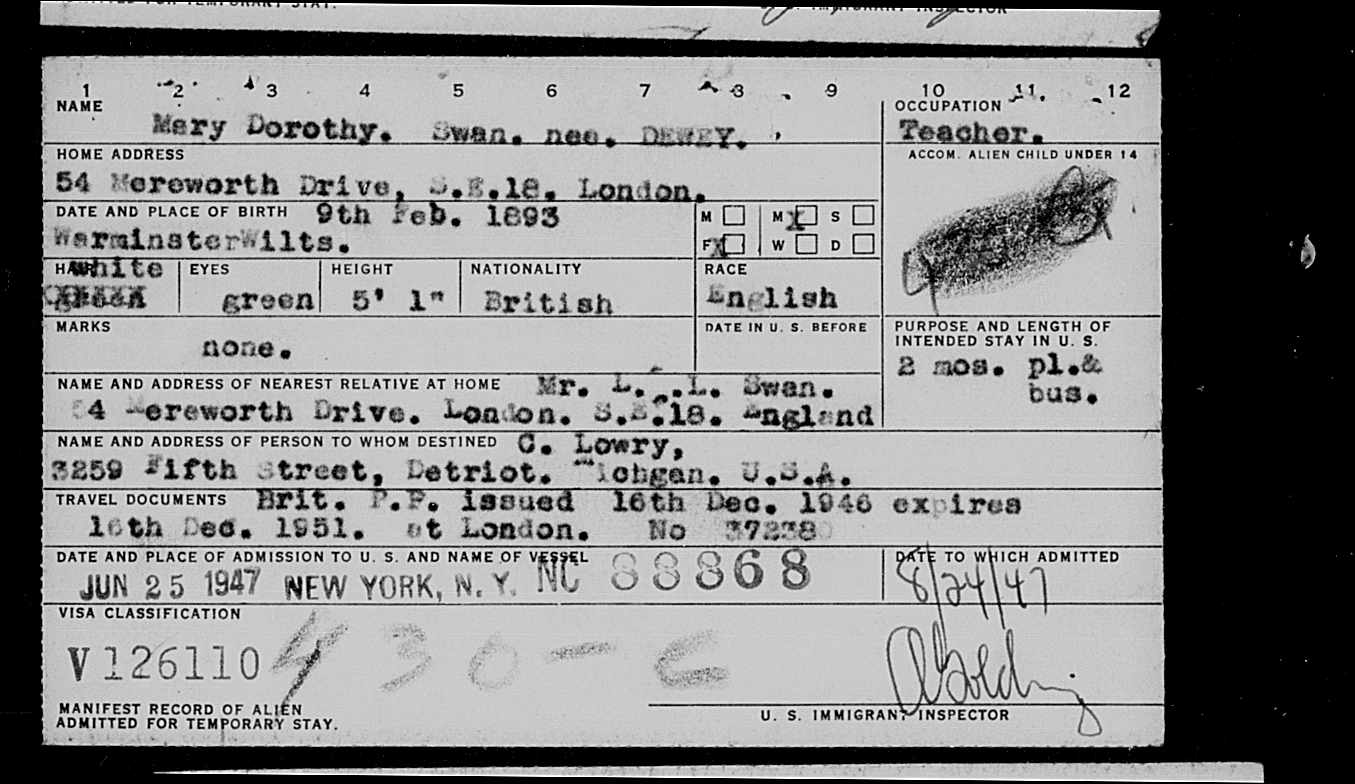 1 2 3 4 5 6 7 8 9 10 11 12
NAME
Mary Dorothy. Swan. nee. DEWEY.
OCCUPATION
Teacher.
HOME ADDRESS
54 Mereworth Drive, S.E.18. London.
ACCOM. ALIEN CHILD UNDER 14
DATE AND PLACE OF BIRTH 9th Feb. 1893
WarminsterWilts.
M M X S
F X W D
HAIR white
EYES
green
HEIGHT
5' 1"
NATIONALITY
British
RACE
English
MARKS
none.
DATE IN U. S. BEFORE
PURPOSE AND LENGTH OF
INTENDED STAY IN U. S.
2 mos. pl.&
bus.
NAME AND ADDRESS OF NEAREST RELATIVE AT HOME Mr. L. L. Swan.
54 Mereworth Drive. London. S.E.18. England
NAME AND ADDRESS OF PERSON TO WHOM DESTINED C. Lowry,
3259 Fifth Street, Detriot. Michgan. U.S.A.
TRAVEL DOCUMENTS Brit. P.P. issued 16th Dec. 1946 expires
16th Dec. 1951. at London. No 37238
DATE AND PLACE OF ADMISSION TO U. S. AND NAME OF VESSEL
JUN 25 1947 NEW YORK, N. Y. NC 88868
DATE TO WHICH ADMITTED
8/24/47
VISA CLASSIFICATION
V126110 430-C
MANIFEST RECORD OF ALIEN
ADMITTED FOR TEMPORARY STAY.
U. S. IMMIGRANT INSPECTOR